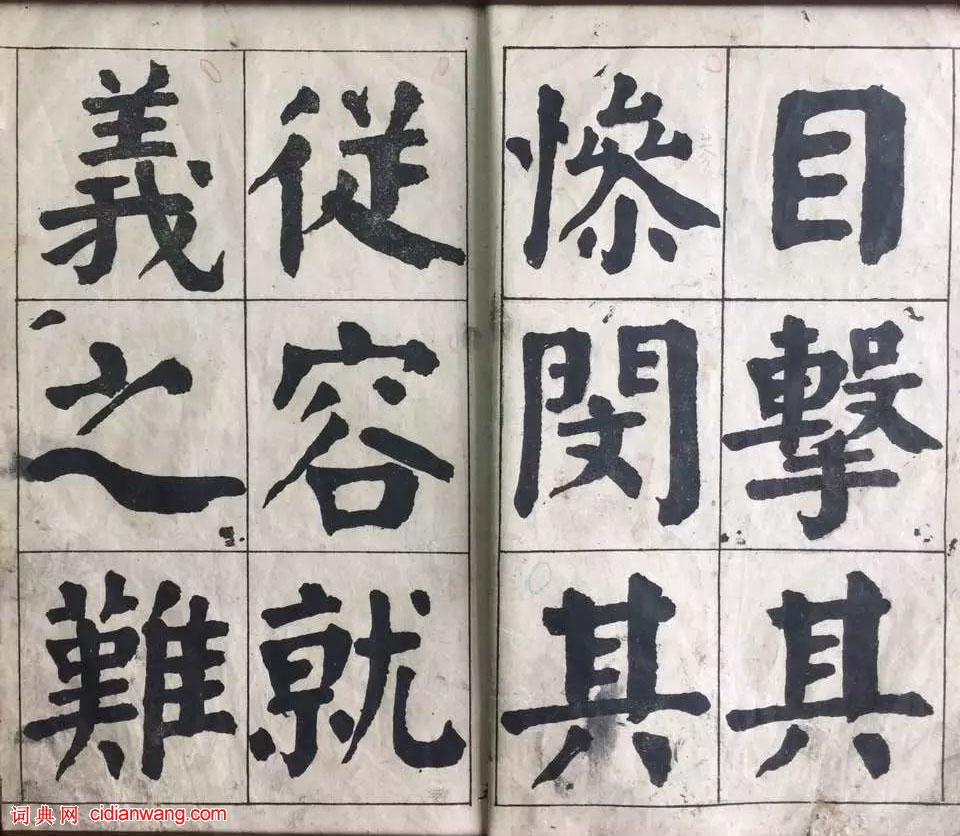 目擊其
慘閔其
從容就
義之難
词典网 cidianwang.com